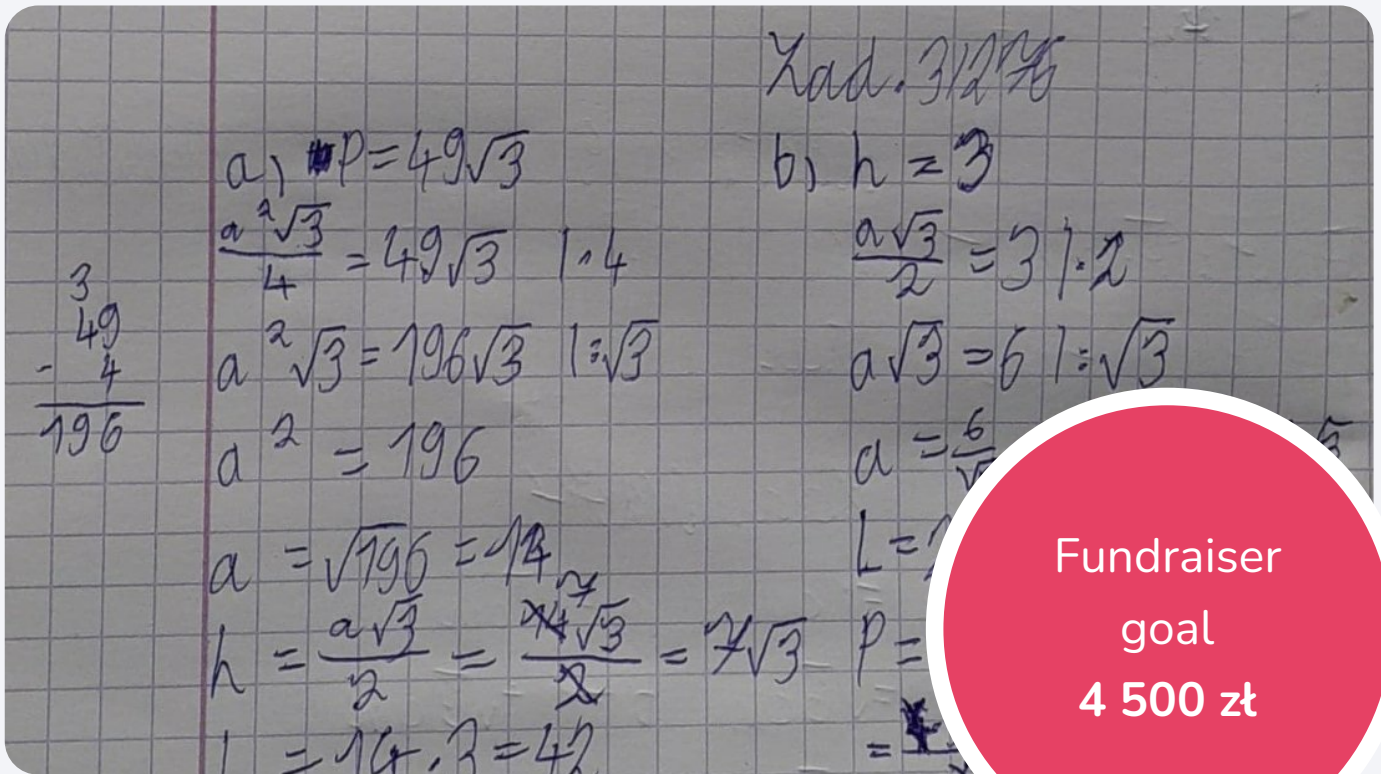 Zad. 3/276
a) P = 49√3
a²√3/4 = 49√3 |·4
a²√3 = 196√3 |:√3
a² = 196
a = √196 = 14
h = a√3/2 = 14√3/2 = 7√3
L = 14·3 = 42
3
49
- 4
196
b) h = 3
a√3/2 = 3 |·2
a√3 = 6 |:√3
a = 6
L =
P =
=
7
Fundraiser
goal
4 500 zł